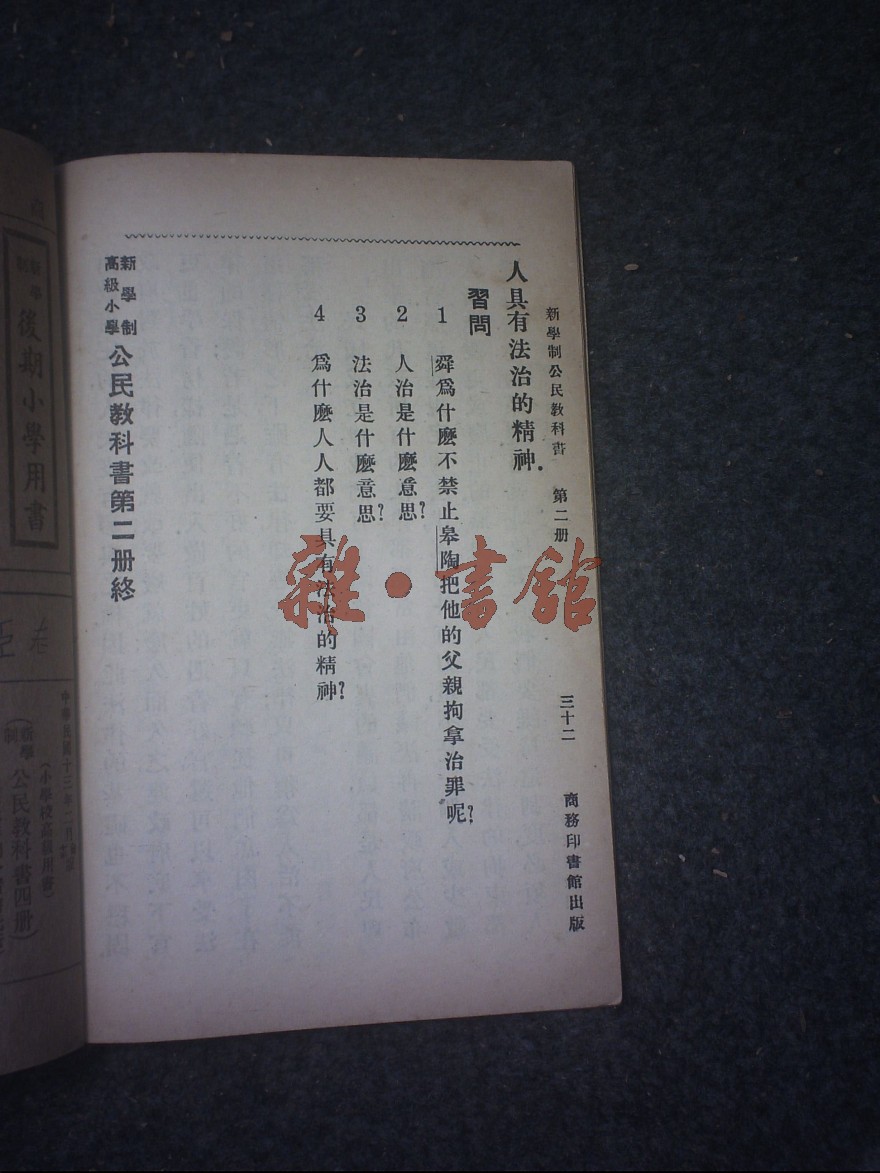 新學制公民教科書 第二册 三十二 商務印書館出版
人具有法治的精神.
習問
1 舜爲什麽不禁止皋陶把他的父親拘拿治罪呢?
2 人治是什麽意思?
3 法治是什麽意思?
4 爲什麽人人都要具有法治的精神?
新學制
高級小學
公民教科書第二册終
雜·書館
新學制
後期小學用書
(小學校高級用書)
新學制
公民教科書四册